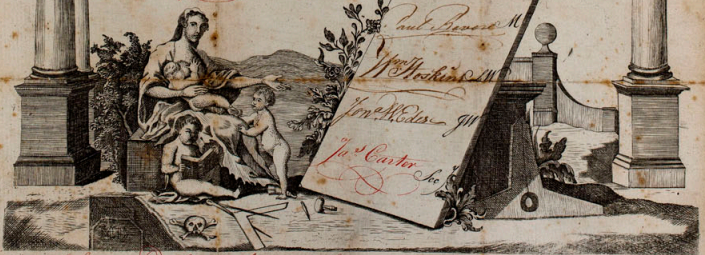 Paul Revere M
Wm Hoskins SW
Jona W Edes JW
Jas Carter Sec